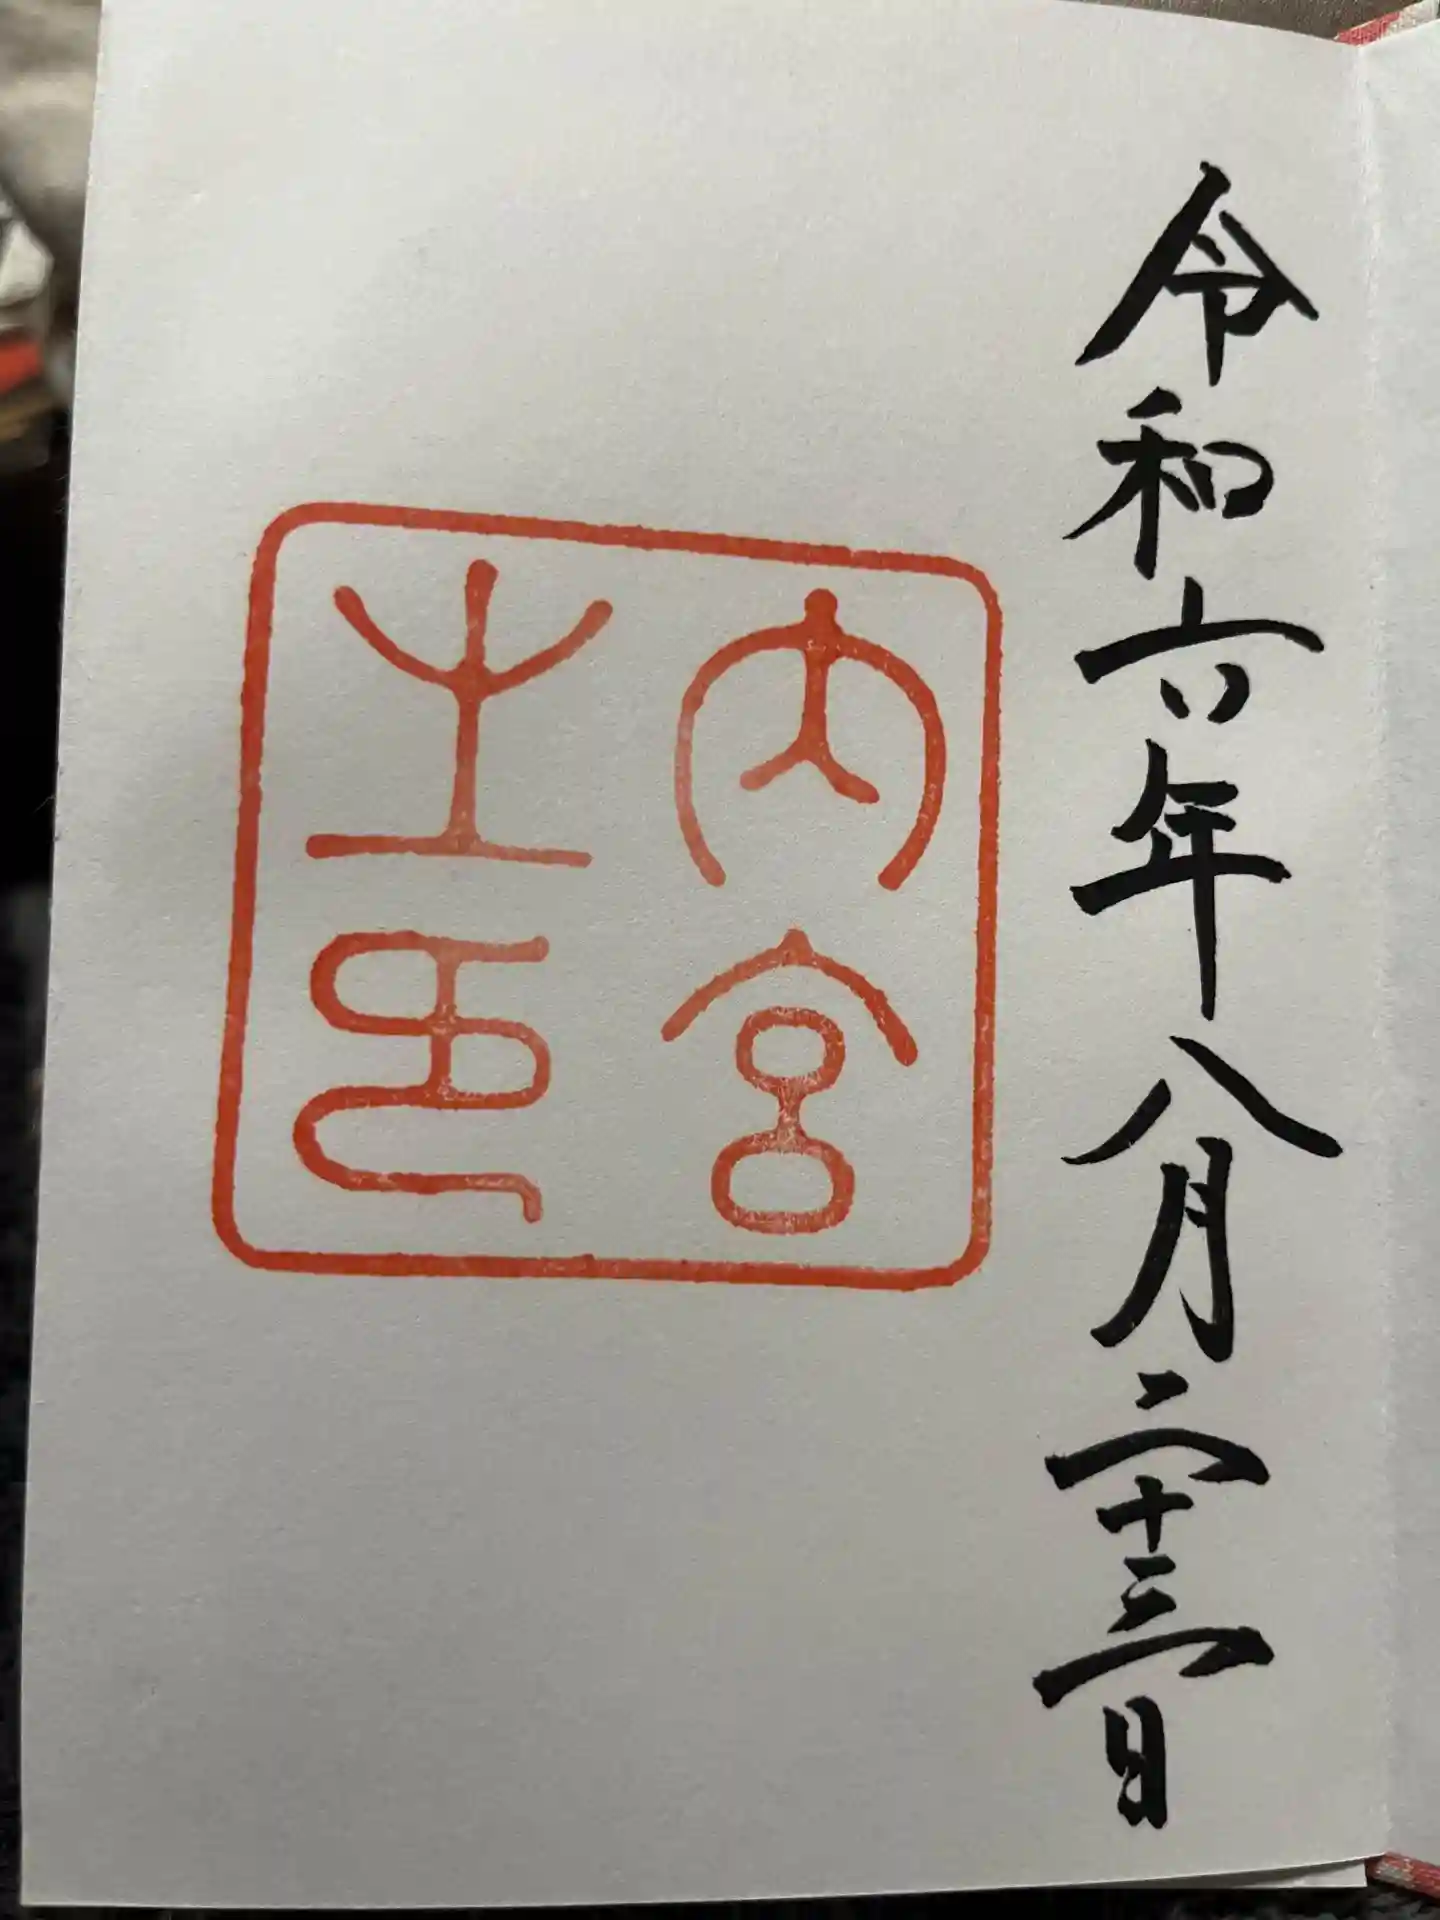 令和六年八月二十三日
内宮
之印